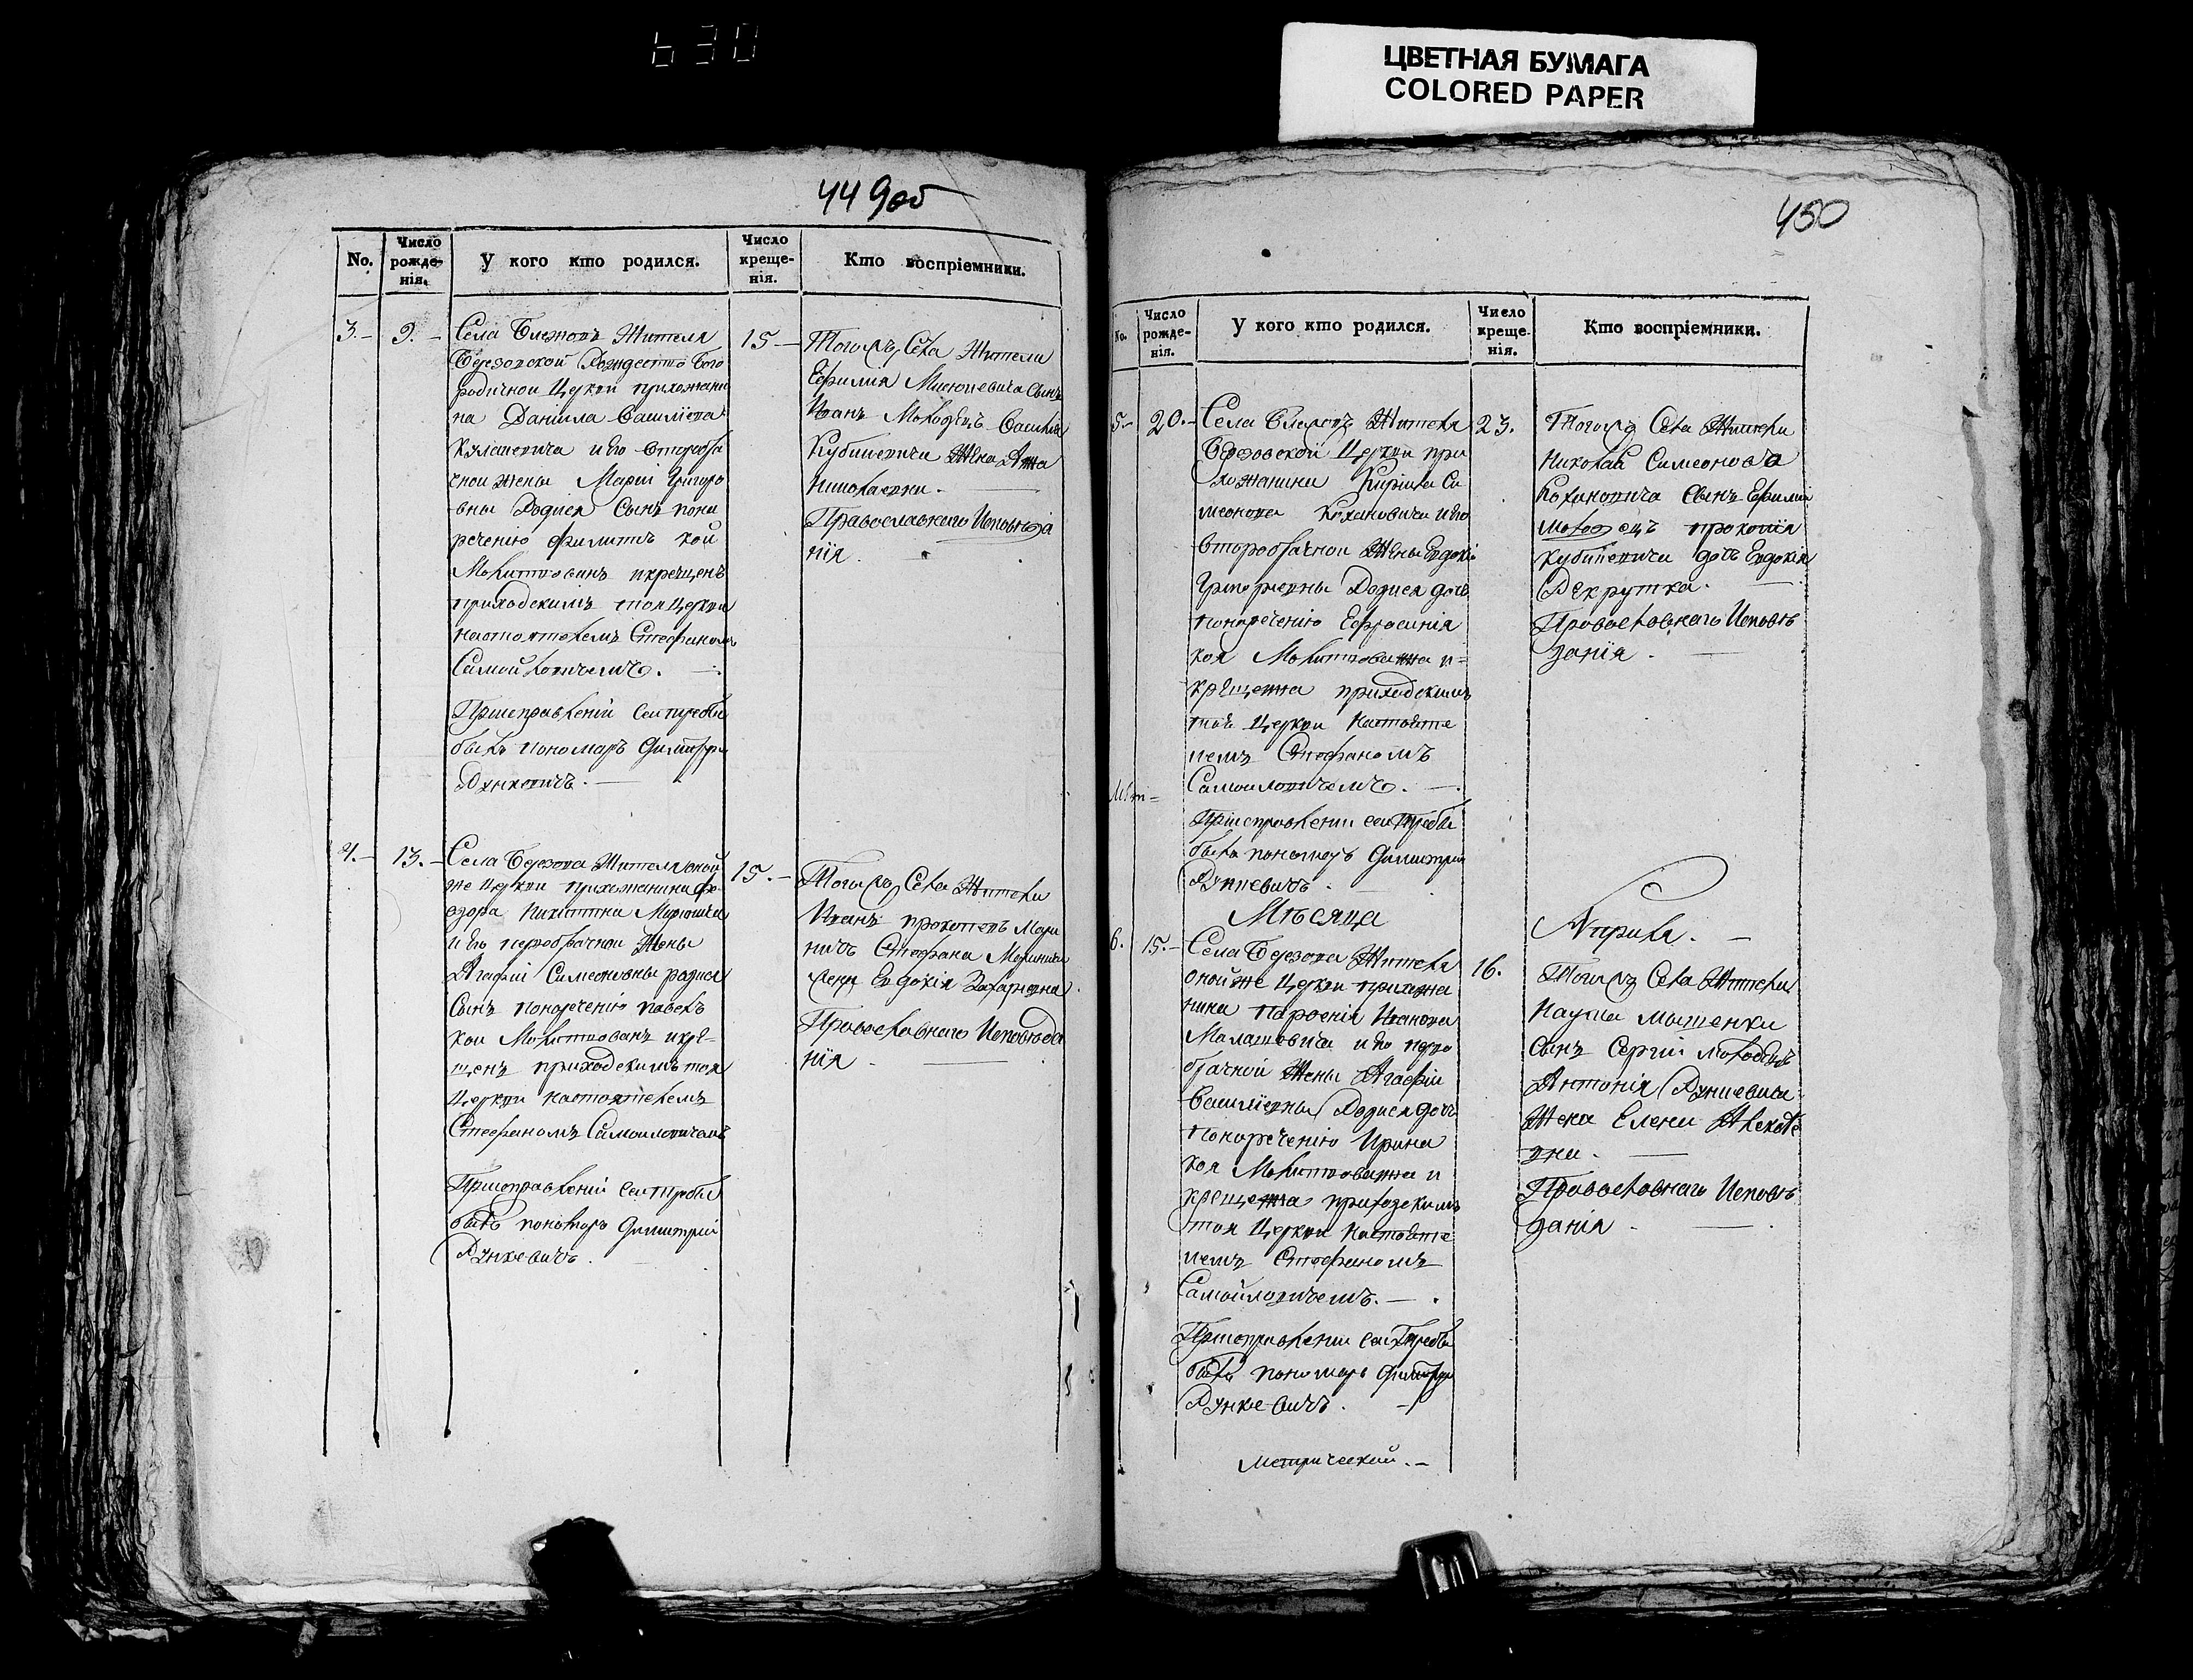 630
ЦВЕТНАЯ БУМАГА
COLORED PAPER
449об
No.
Число рожде-нія.
У кого кто родился.
Число креще-нія.
Кто воспріемники.
3.- 9.-
Села Бѣлаго Жителя
Березовской Рождество Бого
родичной Церкви прихожани
на Даніила Василіева
и Его второбра
чной жены Маріи Григоро
вны Родился Сынъ пона
речению Филиппъ кой
Молитвованъ и крещенъ
приходскимъ тоя Церкви
настоятелемъ Стефаномъ
Самойловичемъ.
При справленіи сей требы
былъ пономаръ Димитрій
Рункевичъ.
15 -
Тогожъ Села Жители
Сынъ
Иванъ Молодецъ Василія
Кубишевича Жена Анна
Николаевна.
Православнаго Исповѣда
нія.
4.- 13.-
Села Березова Жителя оной
же Церкви прихожанина Фе-
одора
и Его первобрачной Жены
Агафіи Симеоновны родился
Сынъ понаречению Павелъ
кои Молитвованъ и кре-
щенъ приходскимъ тоя
Церкви настоятелемъ
Стефаномъ Самойловичемъ
При справленіи сей требы
былъ пономаръ Димитрій
Рункевичъ.
15.-
Тогожъ Села Жители
Иванъ
Стефана
Евдокія Захаріевна.
Православнаго Исповѣда
нія.
450
No.
Число рожде-нія.
У кого кто родился.
Число креще-нія.
Кто воспріемники.
5.- 20.-
Села Жителя
Березовской Церкви при
хожанина Кирила Си
меонова Кохановича и Его
второбрачной Жены Евдокіи
Григорьевны Родися дочъ
понаречению Ефросинія
коя Молитвованна и=
крещенна приходскимъ
той Церкви Настояте
лемъ Стефаномъ
Самойловичемъ.
При справленіи сей Требы
былъ пономаръ Димитрій
Рункевичъ.
23.
Тогожъ Села Жители
Николая Симеонова
Кохановича Сынъ Ефимій
молодецъ Прокопія
Кубишевича дочъ Евдокія
Рекрутка.
Православнаго Исповѣ
данія.
Мѣсяца
Априля.
6. 15.-
Села Березова Жителя
оной же Церкви прихожа
нина Парфенія Иванова
Малашевича и Его перво
брачной Жены Агафіи
Василіевны Родися дочъ
Понаречению Ирина
коя Молитвованна и
крещенна приходскимъ
тоя Церкви Настояте
лемъ Стефаномъ
Самойловичемъ.
При справленіи сей Требы
былъ пономаръ Димитрій
Рункевичъ.
16.
Тогожъ Села Жители
Наума
Сынъ Сергій молодецъ
Антонія Рункевича
Жена Елена Алексѣе
вна.
Православнаго Исповѣ
данія.
Метрической.-